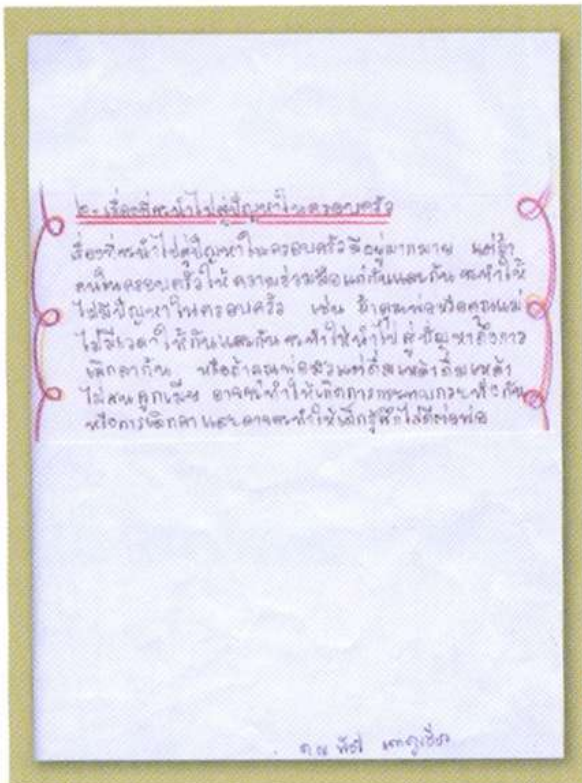 ๒. เรื่องที่จะนำไปสู่ปัญหาในครอบครัว
เรื่องที่จะนำไปสู่ปัญหาในครอบครัวมีอยู่มากมาย แต่ถ้า
คนในครอบครัวให้ความร่วมมือแก่กันและกันจะทำให้
ไม่มีปัญหาในครอบครัว เช่น ถ้าคุณพ่อหรือคุณแม่
ไม่มีเวลาให้กันและกันจะทำให้นำไปสู่ปัญหาถึงการ
เลิกลากัน หรือถ้าคุณพ่อสวมแต่ดื่มเหล้า
ไม่สนลูกเมีย อาจจะทำให้เกิดการทะเลาะกัน
หรือการเลิกลา และอาจจะทำให้เด็กรู้สึกไม่ดีต่อพ่อ